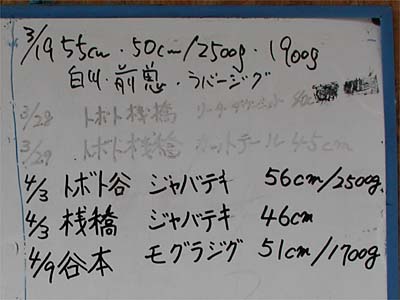 3/19 55cm・50cm/2500g・1900g
白川・前島・ラバージグ
3/28 トボト桟橋 40cm
3/29 トボト桟橋 カットテール 45cm
4/3 トボト谷 ジャバテキ 56cm/2500g
4/3 桟橋 ジャバテキ 46cm
4/9 谷本 モグラジグ 51cm/1700g